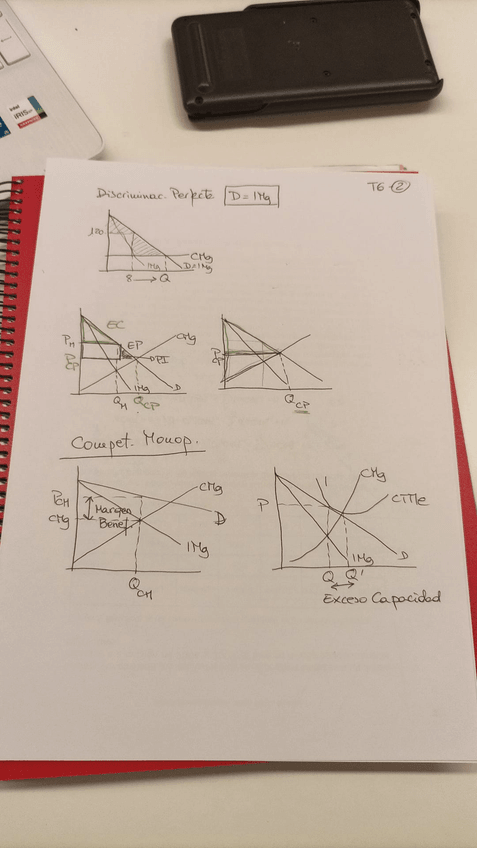 intel
IRIS
T6 - 2
Discriminac. Perfecte D = IMg
120
CMg
IMg
D=IMg
8 → Q
EC
PM
EP
CMg
PCP
IMg
D
QM QCP
PCP
QCP
Compet. Monop.
CMg
PCM
Margen
Benef
CMg
D
IMg
QCM
CMg
CTMe
P
IMg
D
Q Q'
Exceso Capacidad